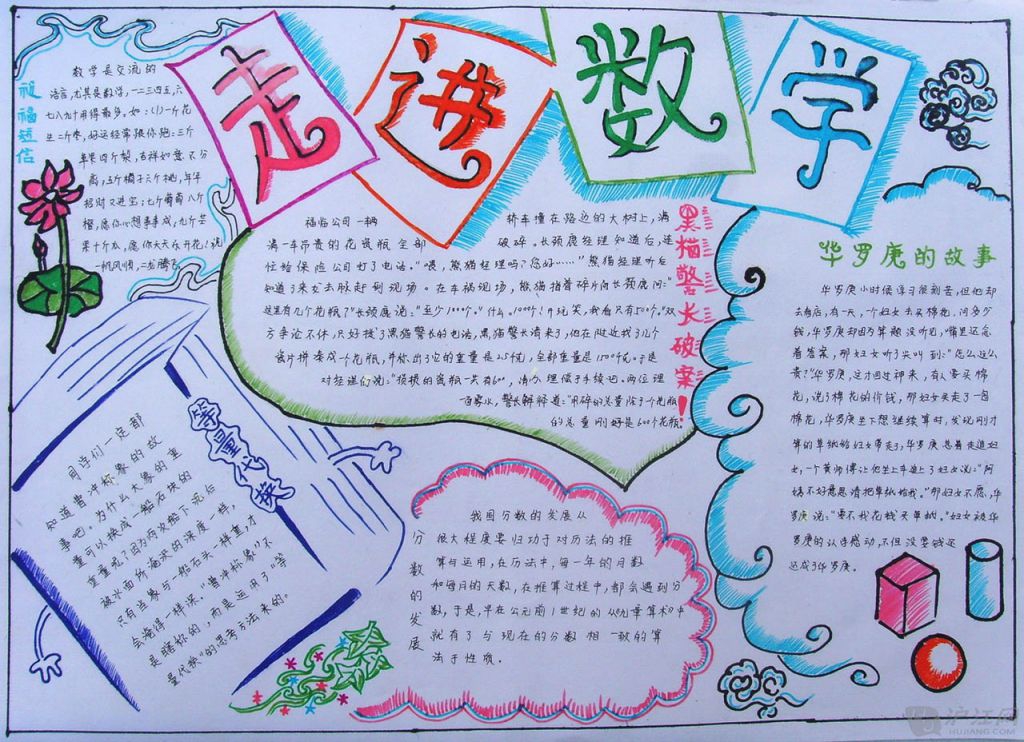 走进数学
祝福短信
数学是交流的
语言,尤其是数字,一二三四五,六
七八九十用得最多。如:(1)一斤花
生二斤枣,好运经常跟你跑;三斤
苹果四斤梨,吉祥如意不分
离;五斤橘子六斤桃,年年
招财又进宝;七斤葡萄八斤
橙,愿你心想事事成;九斤芒
果十斤瓜,愿你天天乐开花!祝
一帆风顺,二龙腾飞
黑猫警长破案!
福临公司一辆
满一车昂贵的花瓷瓶全部
忙给保险公司打了电话。“喂,熊猫经理吗?您好……”熊猫经理听后
知道了来龙去脉赶到现场。在车祸现场,熊猫指着碎片向长颈鹿问:“
这里有几个花瓶?”长颈鹿说:“至少1000个。”“什么,1000个!开玩笑,我看只有500个。”双
方争论不休,只好找了黑猫警长的电话,黑猫警长清来了,他在附近找了几个
瓷片拼凑成一个花瓶,并称出了它的重量是2.5千克,全部重量是1500千克。于是
对经理们说:“损坏的瓷瓶一共有600,请办理赔手续吧。两位理
一百雾水,警长解释道:“用碎的总量除于个花瓶
的总重刚好是600个花瓶。
轿车撞在路边的大树上,满
破碎。长颈鹿经理知道后,连
华罗庚的故事
华罗庚小时候学习很刻苦,但他却
去看店,有一天,一个妇女去买棉花,问多少
钱,华罗庚却因为算题没听见,嘴里还念
着答案,那妇女听了尖叫到:“怎么这么
贵?”华罗庚,这才回过神来,有人要买棉
花,说了棉花的价钱,那妇女买走了一包
棉花,华罗庚坐下想继续算时,发现刚才
算的草纸给妇女带走了,华罗庚急着去追妇
女,一个黄师傅让他坐上车追上了妇女说:“阿
姨不好意思请把草纸给我。”那妇女不愿,华
罗庚说:“要不我花钱买草纸。”妇女被华
罗庚的认真感动,不但没要钱还
还成了华罗庚。
等量代换
同学们一定都
知道曹冲称象的故
事吧。为什么大象的重
量可以换成一船石块的
重量呢?因为两次船下沉后
被水面所淹没的深度一样,
只有当象与一船石头一样重,才
会淹得一样深。“曹冲称象”不
是瞎称的,而是运用了“等
量代换”的思考方法来的。
分数的发展
我国分数的发展从
很大程度要归功于对历法的推
算与运用,在历法中,每一年的月数
和每月的天数,在推算过程中,都会遇到分
数,于是,早在公元前1世纪的《九章算术》中
就有了与现在的分数相一致的算
法于性质。
沪江网
HUJIANG.COM